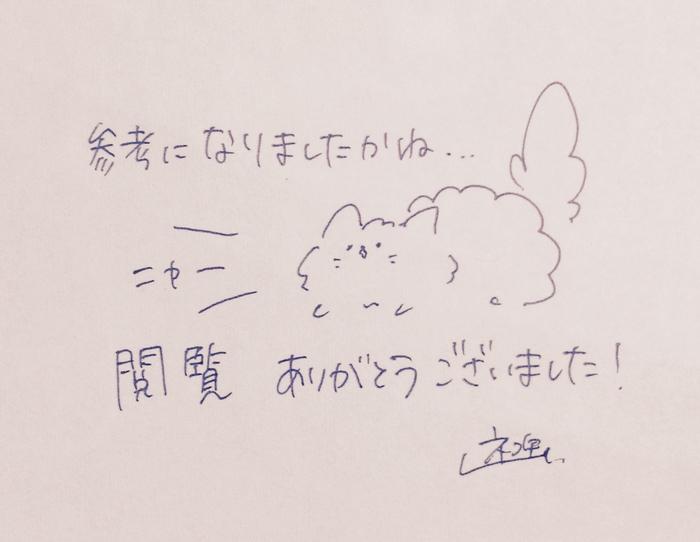 参考になりましたかね...
ニャー
閲覧 ありがとうございました!